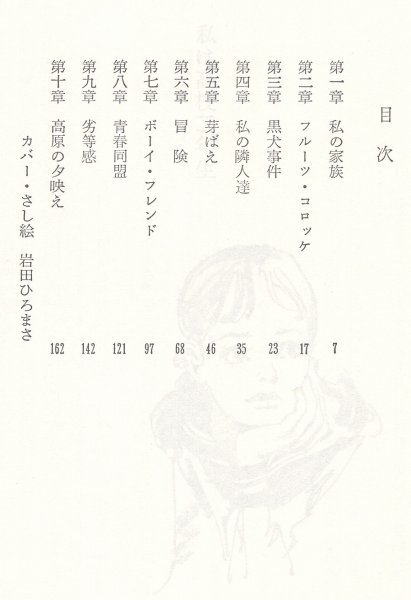 目次
第一章 私の家族 7
第二章 フルーツ・コロッケ 17
第三章 黒犬事件 23
第四章 私の隣人達 35
第五章 芽ばえ 46
第六章 冒険 68
第七章 ボーイ・フレンド 97
第八章 青春同盟 121
第九章 劣等感 142
第十章 高原の夕映え 162
カバー・さし絵 岩田ひろまさ